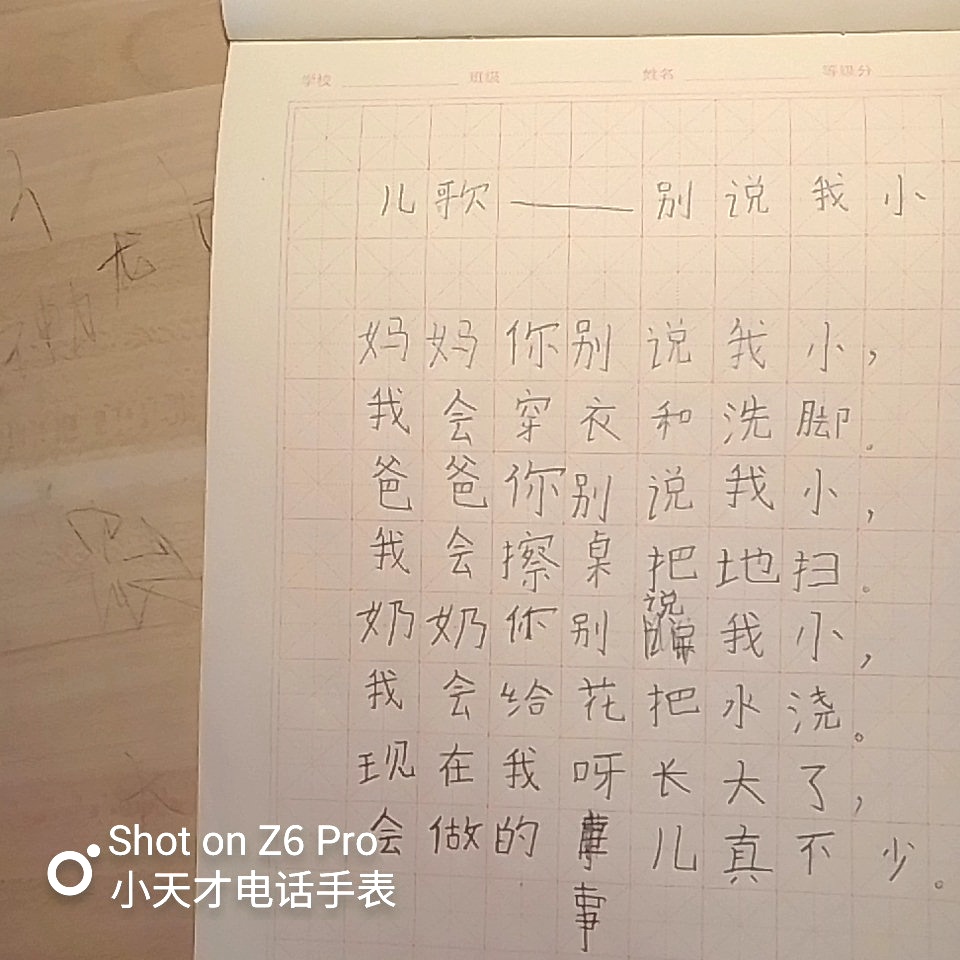 学校 班级 姓名 等级分
儿歌——别说我小
妈妈你别说我小，
我会穿衣和洗脚。
爸爸你别说我小，
我会擦桌把地扫。
奶奶你别说我小，
我会给花把水浇。
现在我呀长大了，
会做的事儿真不少。
Shot on Z6 Pro
小天才电话手表